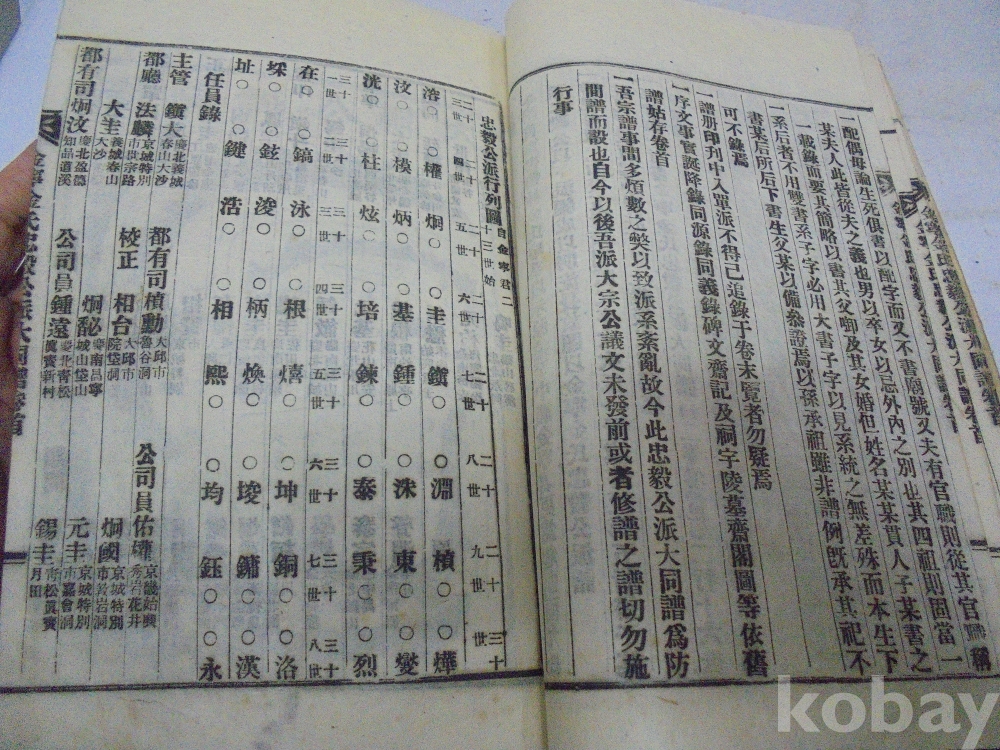 一配偶毋論生死俱書以配字而又不書廟號又夫有官職則從其官職稱
某夫人此皆從夫之義也男以卒女以忌外內之別也其四祖則固當一
一載錄而要其簡略以書其父啣及其女婚但姓名某某貫人子某書之
一系后者不用雙書系子字必用大書子字以見系統之無差殊而本生下
書某后所后下書生父某以備叅證焉以孫承祖雖非譜例旣承其祀不
可不錄焉
一譜册印刊中入單派不得已追錄于卷末覽者勿疑焉
一序文事實誕降錄同源錄同義錄碑文齋記及祠宇陵墓齋閣圖等依舊
譜姑存卷首
一吾宗譜事間多煩數之獘以致派系紊亂故今此忠毅公派大同譜爲防
間譜而設也自今以後吾派大宗公議文未發前或者修譜之譜切勿施
行事
忠毅公派行列圖自金寧君二十三世始
二十三世 二十四世 二十五世 二十六世 二十七世 二十八世 二十九世 三十世
溶○ ○權 炯○ ○圭 鑌○ ○淵 楨○ ○燁
汶○ ○模 炳○ ○基 鍾○ ○洙 東○ ○燮
洸○ ○柱 炫○ ○培 鍊○ ○泰 秉○ ○烈
三十一世 三十二世 三十三世 三十四世 三十五世 三十六世 三十七世 三十八世
在○ ○鎬 泳○ ○根 熺○ ○坤 銅○ ○洛
埰○ ○鉉 浚○ ○柄 煥○ ○埈 鏞○ ○漢
址○ ○鍵 浩○ ○相 熙○ ○均 鈺○ ○永
任員錄
主管 鑌大 慶北義城春山大沙
都廳 法麟 京城特別市世宗路 都有司 楨動 大邱市魯谷洞 公司員 佑
大圭 義城春山大沙 校正 相台 大邱市 炯國 京城特別市
都有司 炯汶 慶北盈德知品道溪 炯 元圭 京城特別市嘉會洞
公司員 鍾遠 慶北靑松眞寶新村 錫圭 靑松眞寶月田
kobay